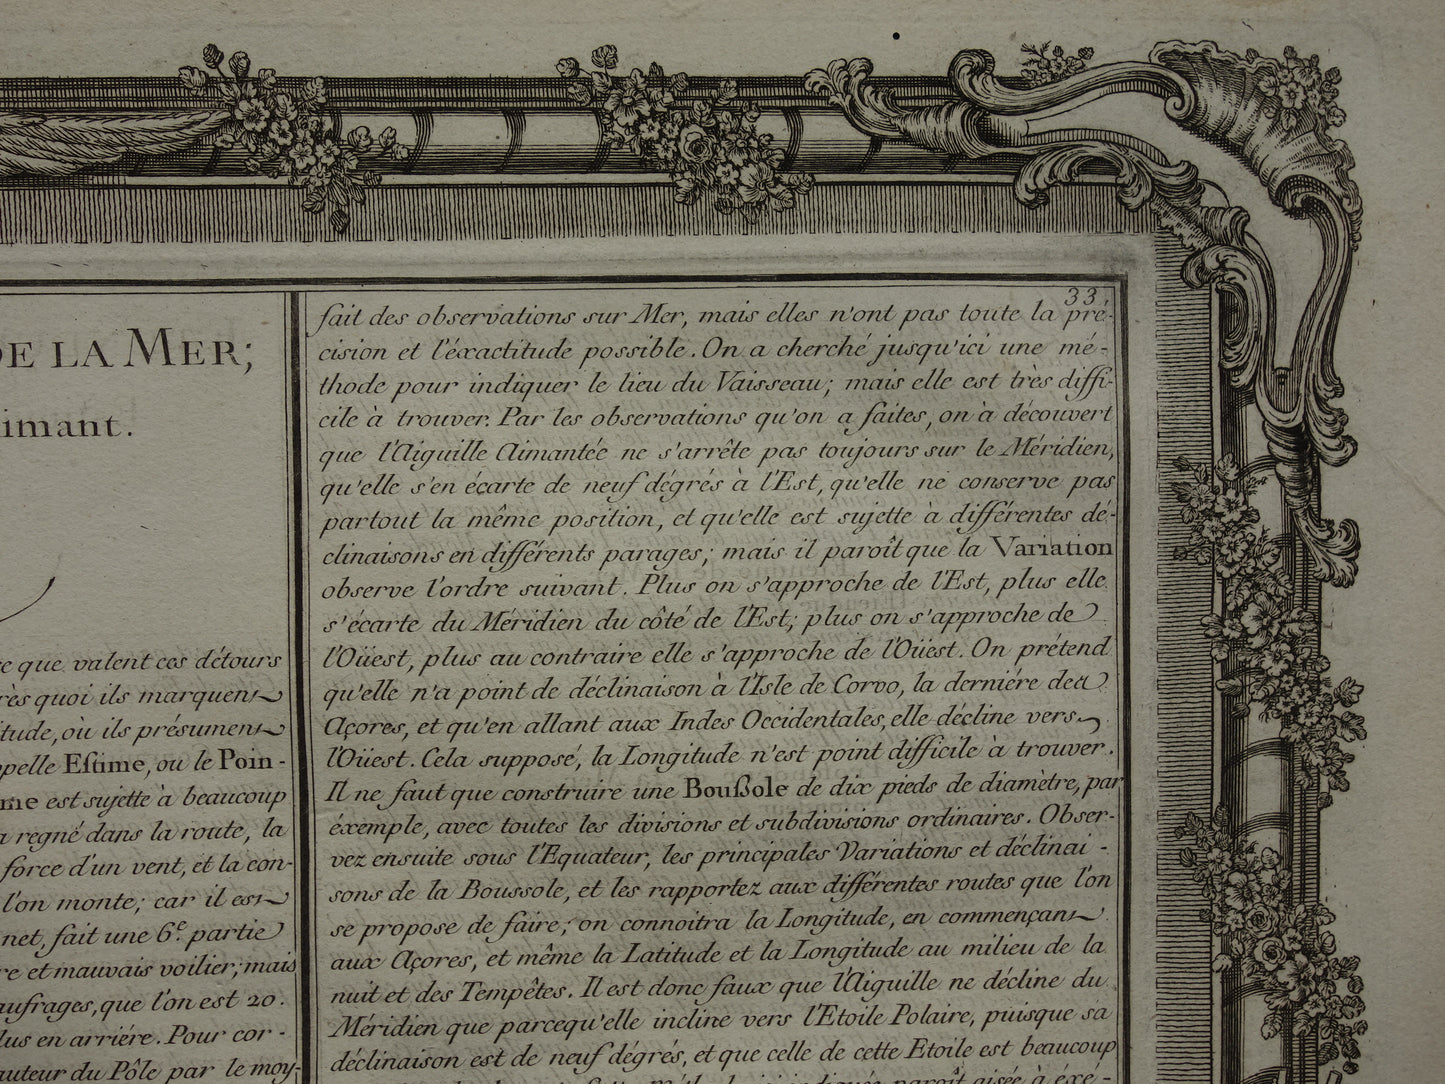 DE LA MER;
imant.
ce que valent ces détours
quoi ils marquent
itude, où ils présument
ppelle Estime, ou le Poin-
me est sujette à beaucoup
a regné dans la route, la
force d'un vent, et la con-
l'on monte; car il est
net, fait une 6e. partie
re et mauvais voilier; mais
aufrages, que l'on est 20.
lus en arriére. Pour cor-
auteur du Pôle par le moy-
33.
fait des observations sur Mer, mais elles n'ont pas toute la pré-
cision et l'éxactitude possible. On a cherché jusqu'ici une mé-
thode pour indiquer le lieu du Vaisseau; mais elle est très diffi-
cile à trouver. Par les observations qu'on a faites, on à découvert
que l'Aiguille Aimantée ne s'arrête pas toujours sur le Méridien,
qu'elle s'en écarte de neuf dégrés à l'Est, qu'elle ne conserve pas
partout la même position, et qu'elle est sujette à différentes dé-
clinaisons en différents parages; mais il paroît que la Variation
observe l'ordre suivant. Plus on s'approche de l'Est, plus elle
s'écarte du Méridien du côté de l'Est; plus on s'approche de
l'Oüest, plus au contraire elle s'approche de l'Oüest. On prétend
qu'elle n'a point de déclinaison à l'Isle de Corvo, la derniére des
Açores, et qu'en allant aux Indes Occidentales, elle décline vers
l'Oüest. Cela supposé, la Longitude n'est point difficile à trouver.
Il ne faut que construire une Boußole de dix pieds de diamètre, par
éxemple, avec toutes les divisions et subdivisions ordinaires. Obser-
vez ensuite sous l'Equateur, les principales Variations et déclinai-
sons de la Boussole, et les rapportez aux différentes routes que l'on
se propose de faire; on connoitra la Longitude, en commençant
aux Açores, et même la Latitude et la Longitude au milieu de la
nuit et des Tempêtes. Il est donc faux que l'Aiguille ne décline du
Méridien que parcequ'elle incline vers l'Etoile Polaire, puisque sa
déclinaison est de neuf dégrés, et que celle de cette Etoile est beaucoup
paroît aisée à éxé-